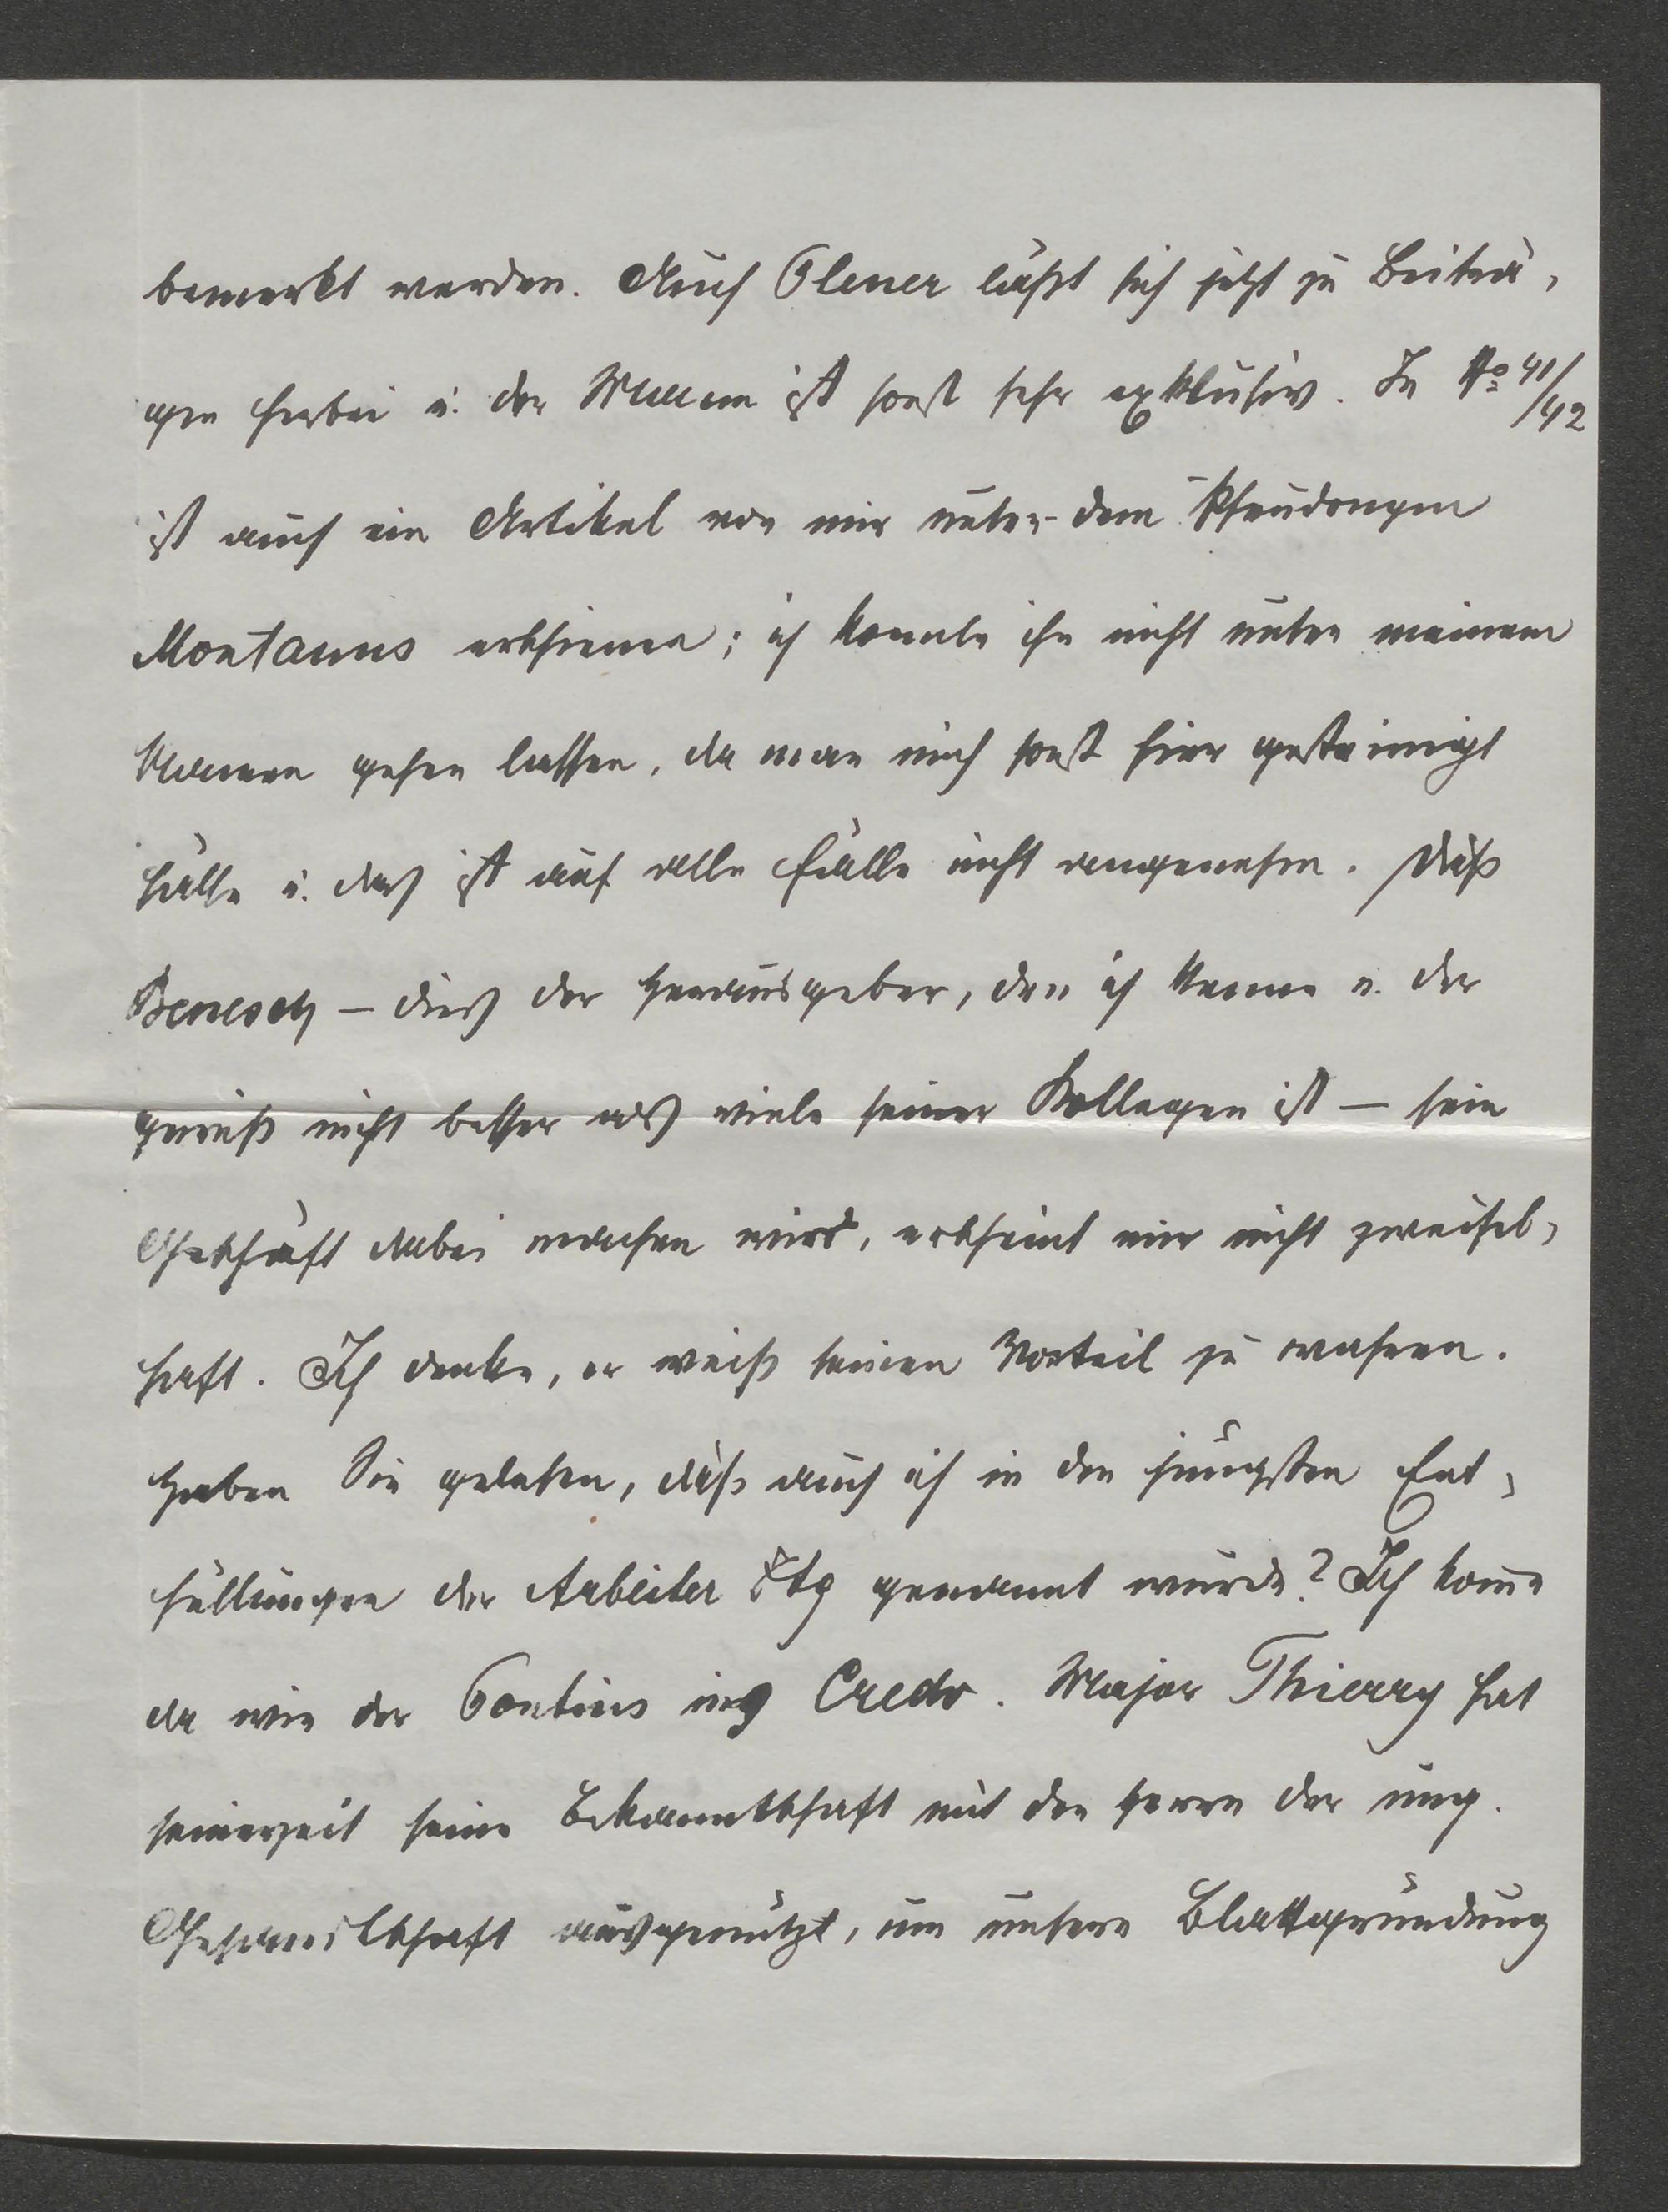 bemerkt werden. Auch Plener läßt sich jetzt zu Beiträ,
gen herbei u. der Mann ist sonst sehr exklusiv. In No 41/42
ist auch ein Artikel von mir unter dem Pseudonym
Montanus erschienen; ich konnte ihn nicht unter meinem
Namen gehen lassen, da man mich sonst hier gesteinigt
hätte u. das ist auf alle Fälle nicht angenehm. Daß
Benesch – dies der Herausgeber, den ich kenne u. der
gewiß nicht besser als viele seiner Kollegen ist – sein
Geschäft dabei machen wird, erscheint mir nicht zweifel,
haft. Ich denke, er weiß seinen Vorteil zu wahren.
Haben Sie gelesen, daß auch ich in den jüngsten Ent,
hüllungen der Arbeiter Ztg genannt wurde? Ich kome
da wie der Pontius ins Credo. Major Thierry hat
seinerzeit seine Bekanntschaft mit den Herrn der ung.
Gesandtschaft ausgenützt, um unsere Blattgründung